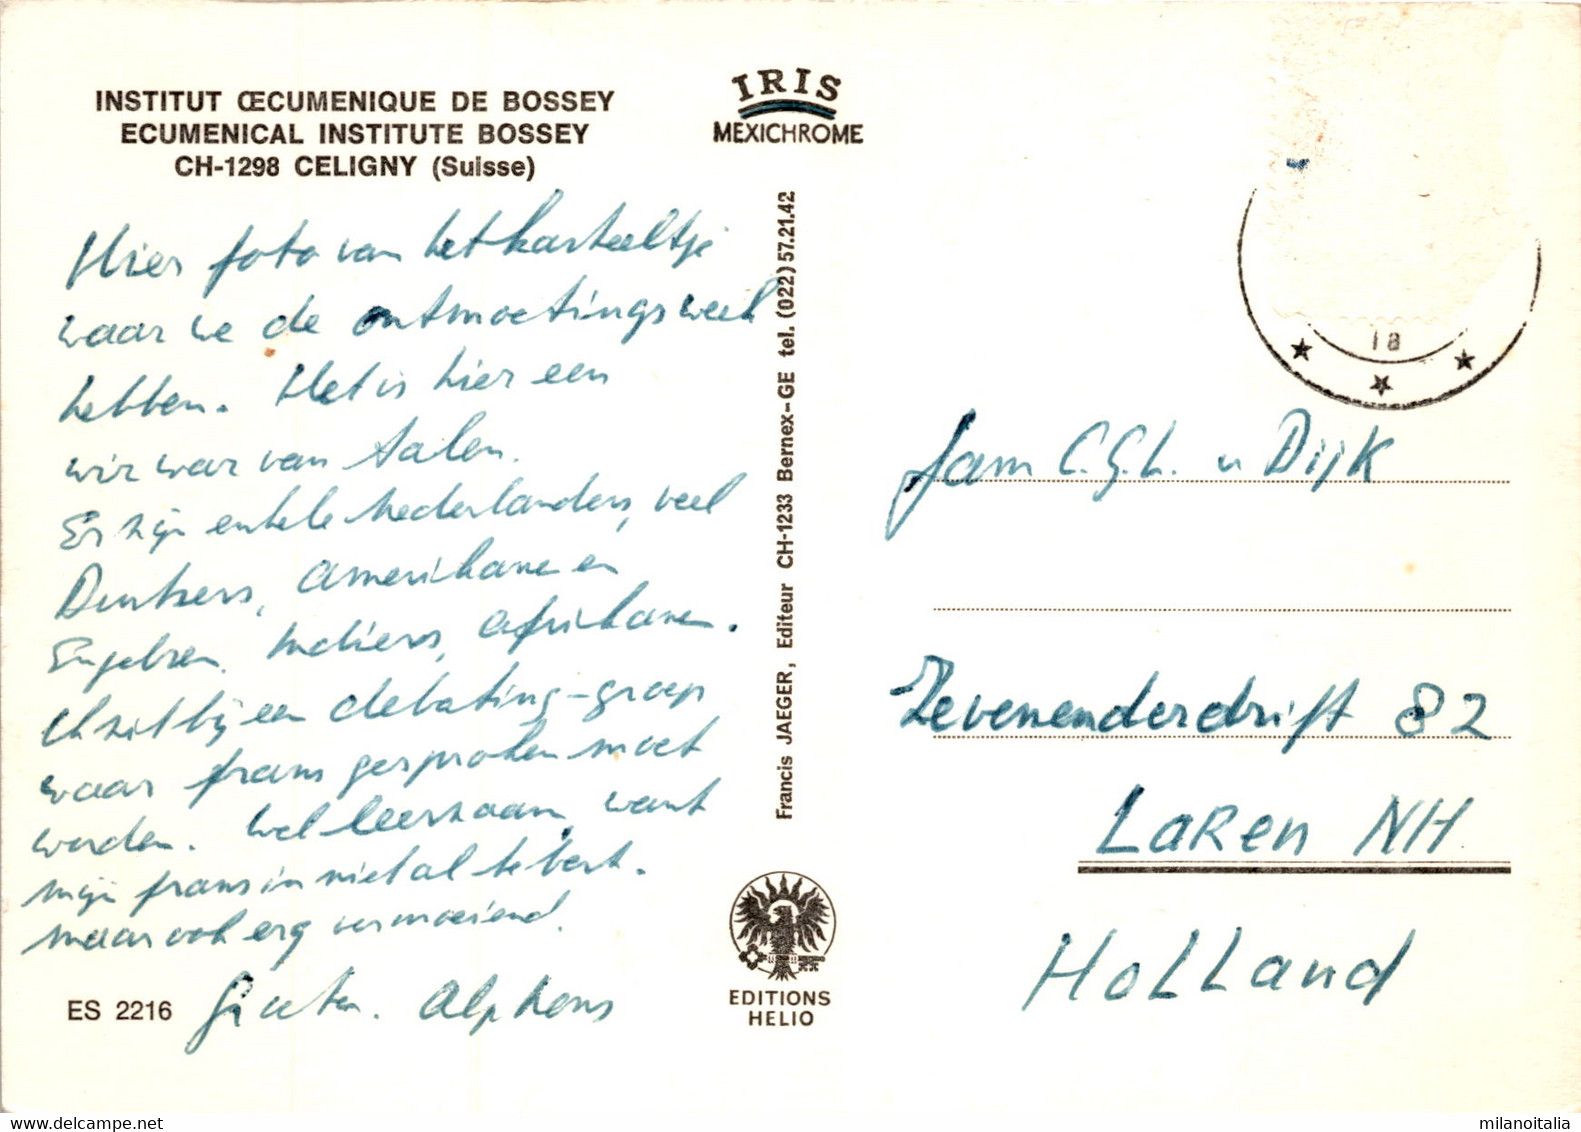 INSTITUT ŒCUMENIQUE DE BOSSEY
ECUMENICAL INSTITUTE BOSSEY
CH-1298 CELIGNY (Suisse)
IRIS
MEXICHROME
Hier foto van het kasteeltje
waar we de ontmoetingsweek
hebben. Het is hier een
wirwar van talen.
Er zijn enkele Nederlanders, veel
Duitsers, Amerikanen en
Engelsen, Indiers, Afrikanen.
Ik zit bij een debating-groep
waar frans gesproken moet
worden. Wel leerzaam, want
mijn frans is niet al te best.
maar ook erg vermoeiend.
Groeten. Alphons
ES 2216
Francis JAEGER, Editeur CH-1233 Bernex-GE tel. (022) 57.21.42
EDITIONS
HELIO
18
fam C.G.L. v Dijk
Zevenenderdrift 82
LAREN NH
HOLLAND
www.delcampe.net
milanoitalia